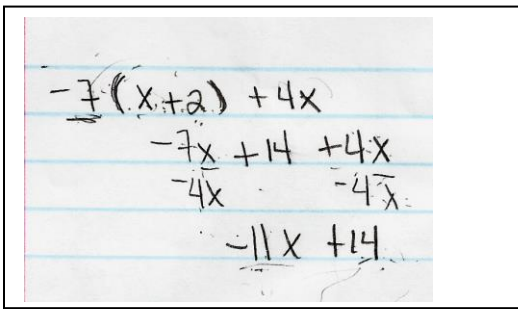 -7(x+2) +4x
-7x +14 +4x
-4x -4x
-11x +14